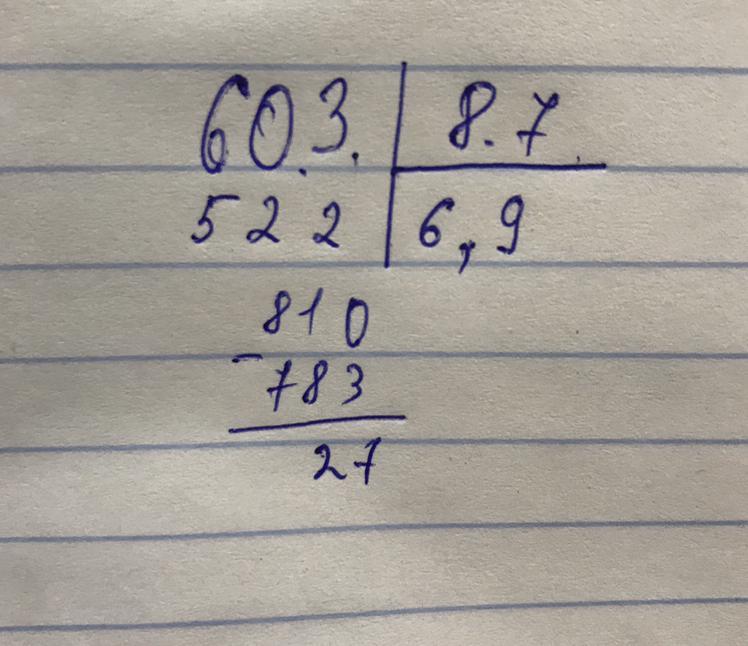 60.3. 8.7
522 6,9
810
- 783
27